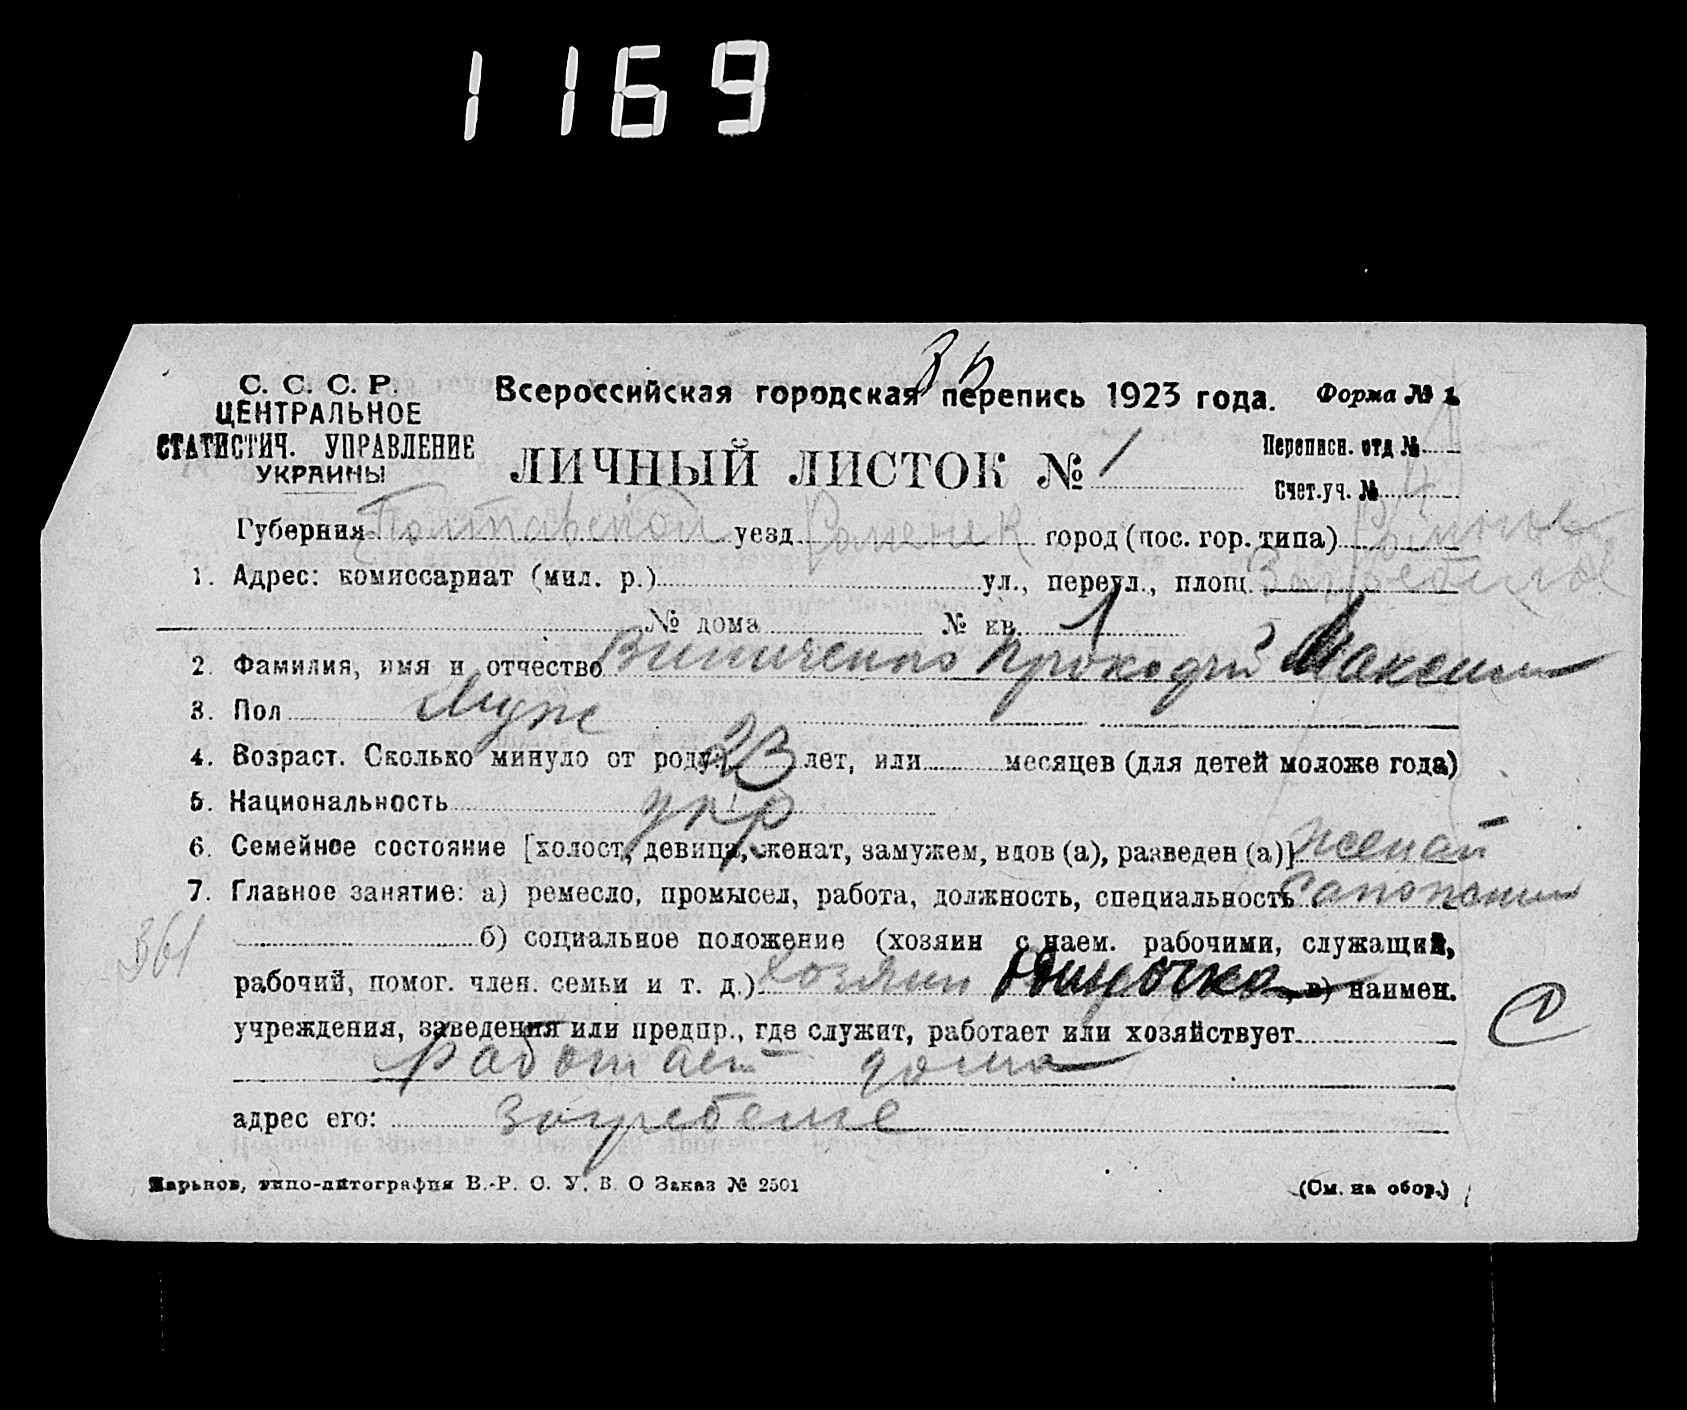 1169
Зр
С. С. С. Р. Всероссийская городская перепись 1923 года. Форма № 1
ЦЕНТРАЛЬНОЕ
СТАТИСТИЧ. УПРАВЛЕНИЕ
УКРАИНЫ
ЛИЧНЫЙ ЛИСТОК № 1
Переписн. отд №
Счет.уч. № 4
Губерния Полтавской уезд Роменск город (пос. гор. типа) Ромны
1. Адрес: комиссариат (мил. р.) ул., переул., площ
№ дома № кв. 1
2. Фамилия, имя и отчество Виниченко Прокофий Максим
3. Пол Муж
4. Возраст. Сколько минуло от роду 23 лет, или месяцев (для детей моложе года)
5. Национальность укр
6. Семейное состояние [холост, девица, женат, замужем, вдов (а), разведен (а)] женат
7. Главное занятие: а) ремесло, промысел, работа, должность, специальность Сапожник
361
б) социальное положение (хозяин с наем. рабочими, служащий,
рабочий, помог. член. семьи и т. д.) Хозяин Одиночка, в) наимен.
учреждения, заведения или предпр., где служит, работает или хозяйствует
работает дома
адрес его: Загребелье
Харьков, типо-литография В.-Р. С. У. В. О Заказ № 2501 (См. на обор.)